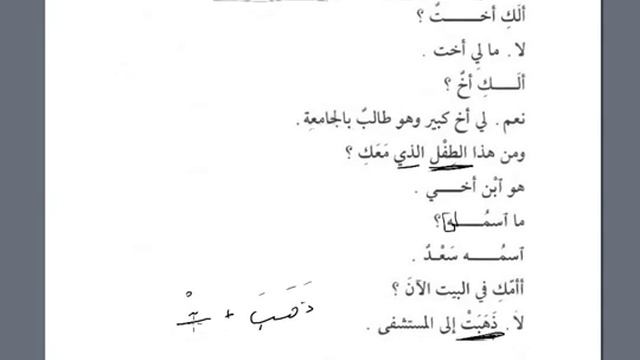 ألَكِ أخـــتٌ ؟
لا . ما لِي أخت .
ألَـــكِ أخٌ ؟
نعم . لي أخ كبير وهو طالبٌ بالجامعةِ .
ومن هذا الطِفْل الذي مَعَكِ ؟
هو ٱبْن أخـــي .
ما ٱسمُـــه ؟
ٱسمُـــه سَعْـدٌ .
أأمّكِ في البيت الآنَ ؟
لَا . ذَهَبَتْ إلى المستشفى .
ذَهَبَ + تْ